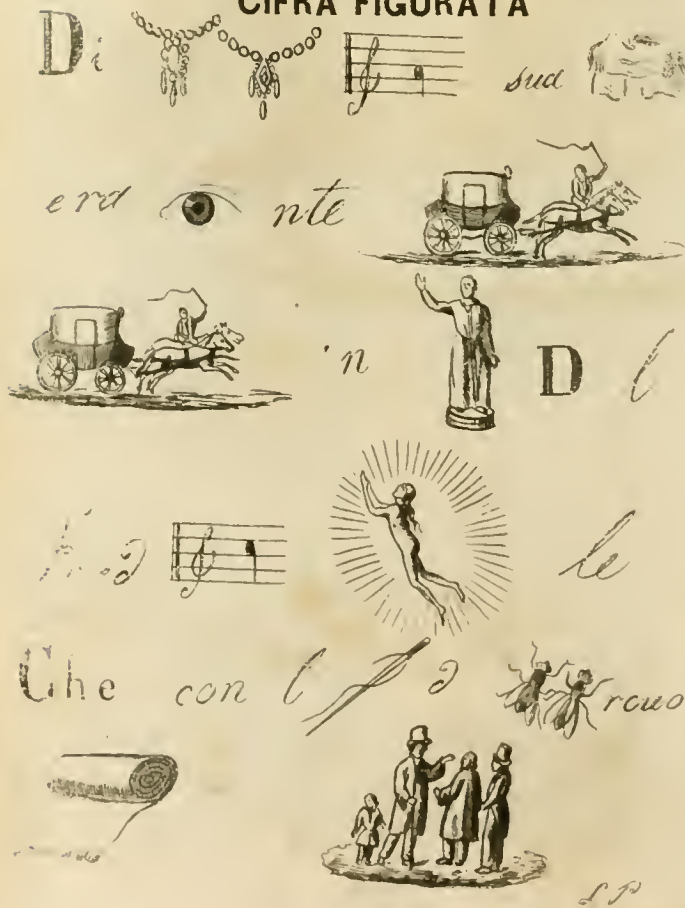 CIFRA FIGURATA
Di sua
era nte
'n D l
le
Che con l a rouo
L P